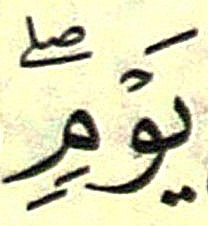 يَوْمٍۖ